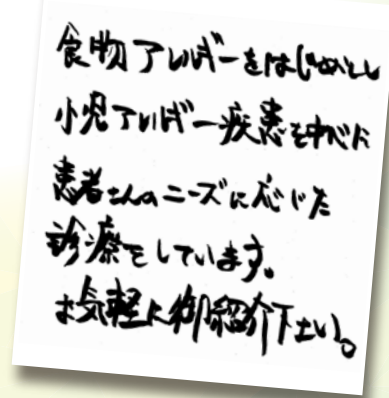 食物アレルギーをはじめとし
小児アレルギー疾患を中心に
患者さんのニーズに応じた
診療をしています。
お気軽に御紹介下さい。